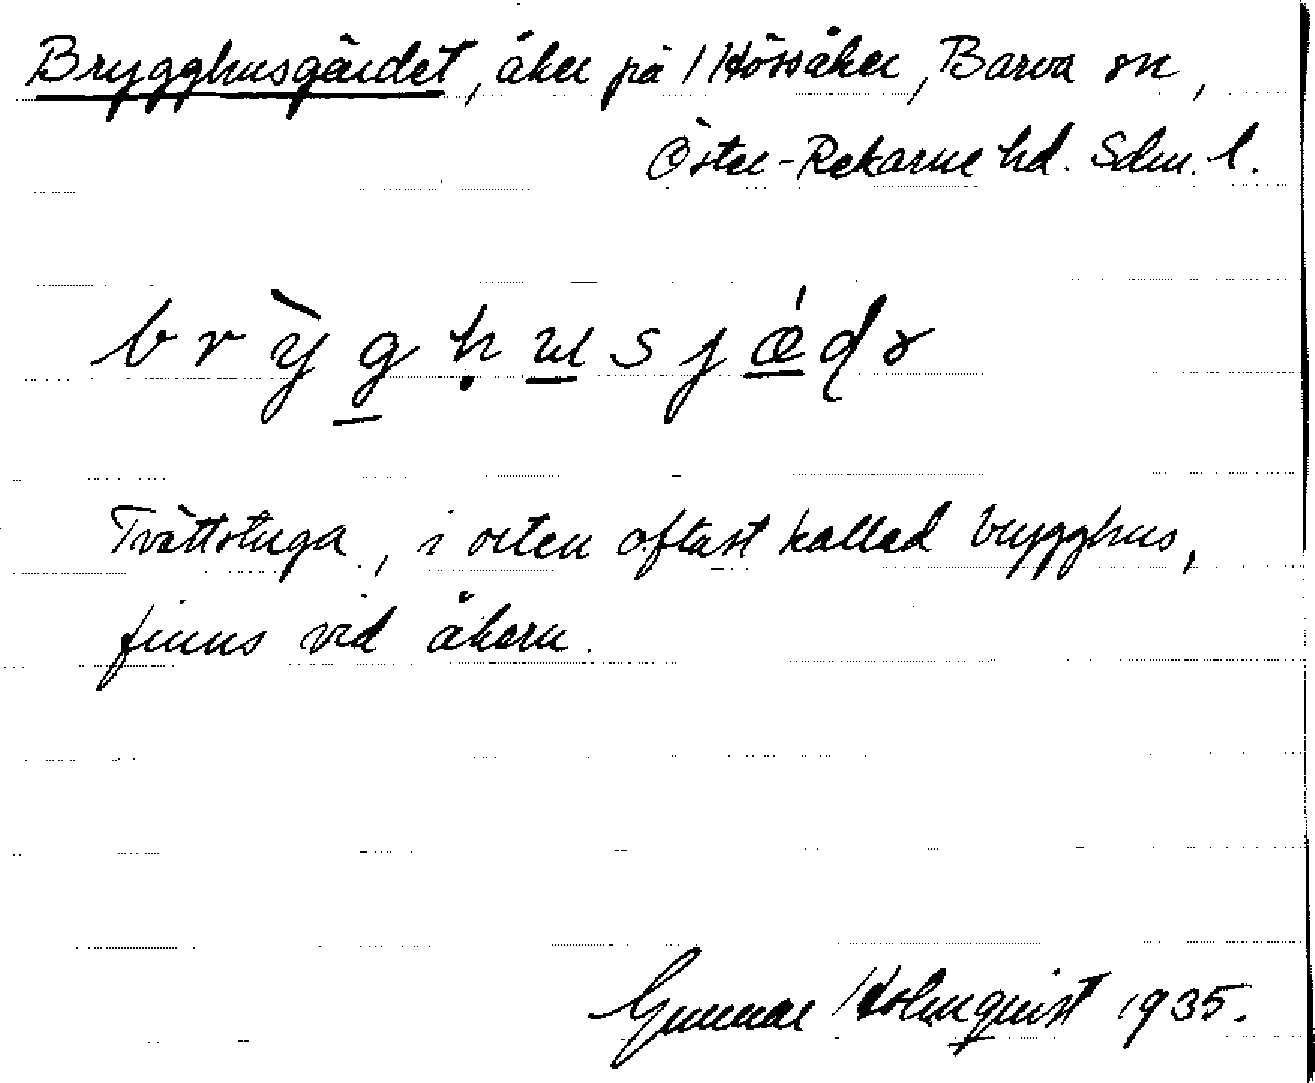 Brygghusgärdet, åker på Hössåker, Barva sn,
Öster-Rekarne hd. Sdm. l.
brỳg̲ḥu̲sjǽ̲ḍə
Tvättstuga, i orten oftast kallad brygghus,
finns vid åkern.
Gunnar Holmquist 1935.